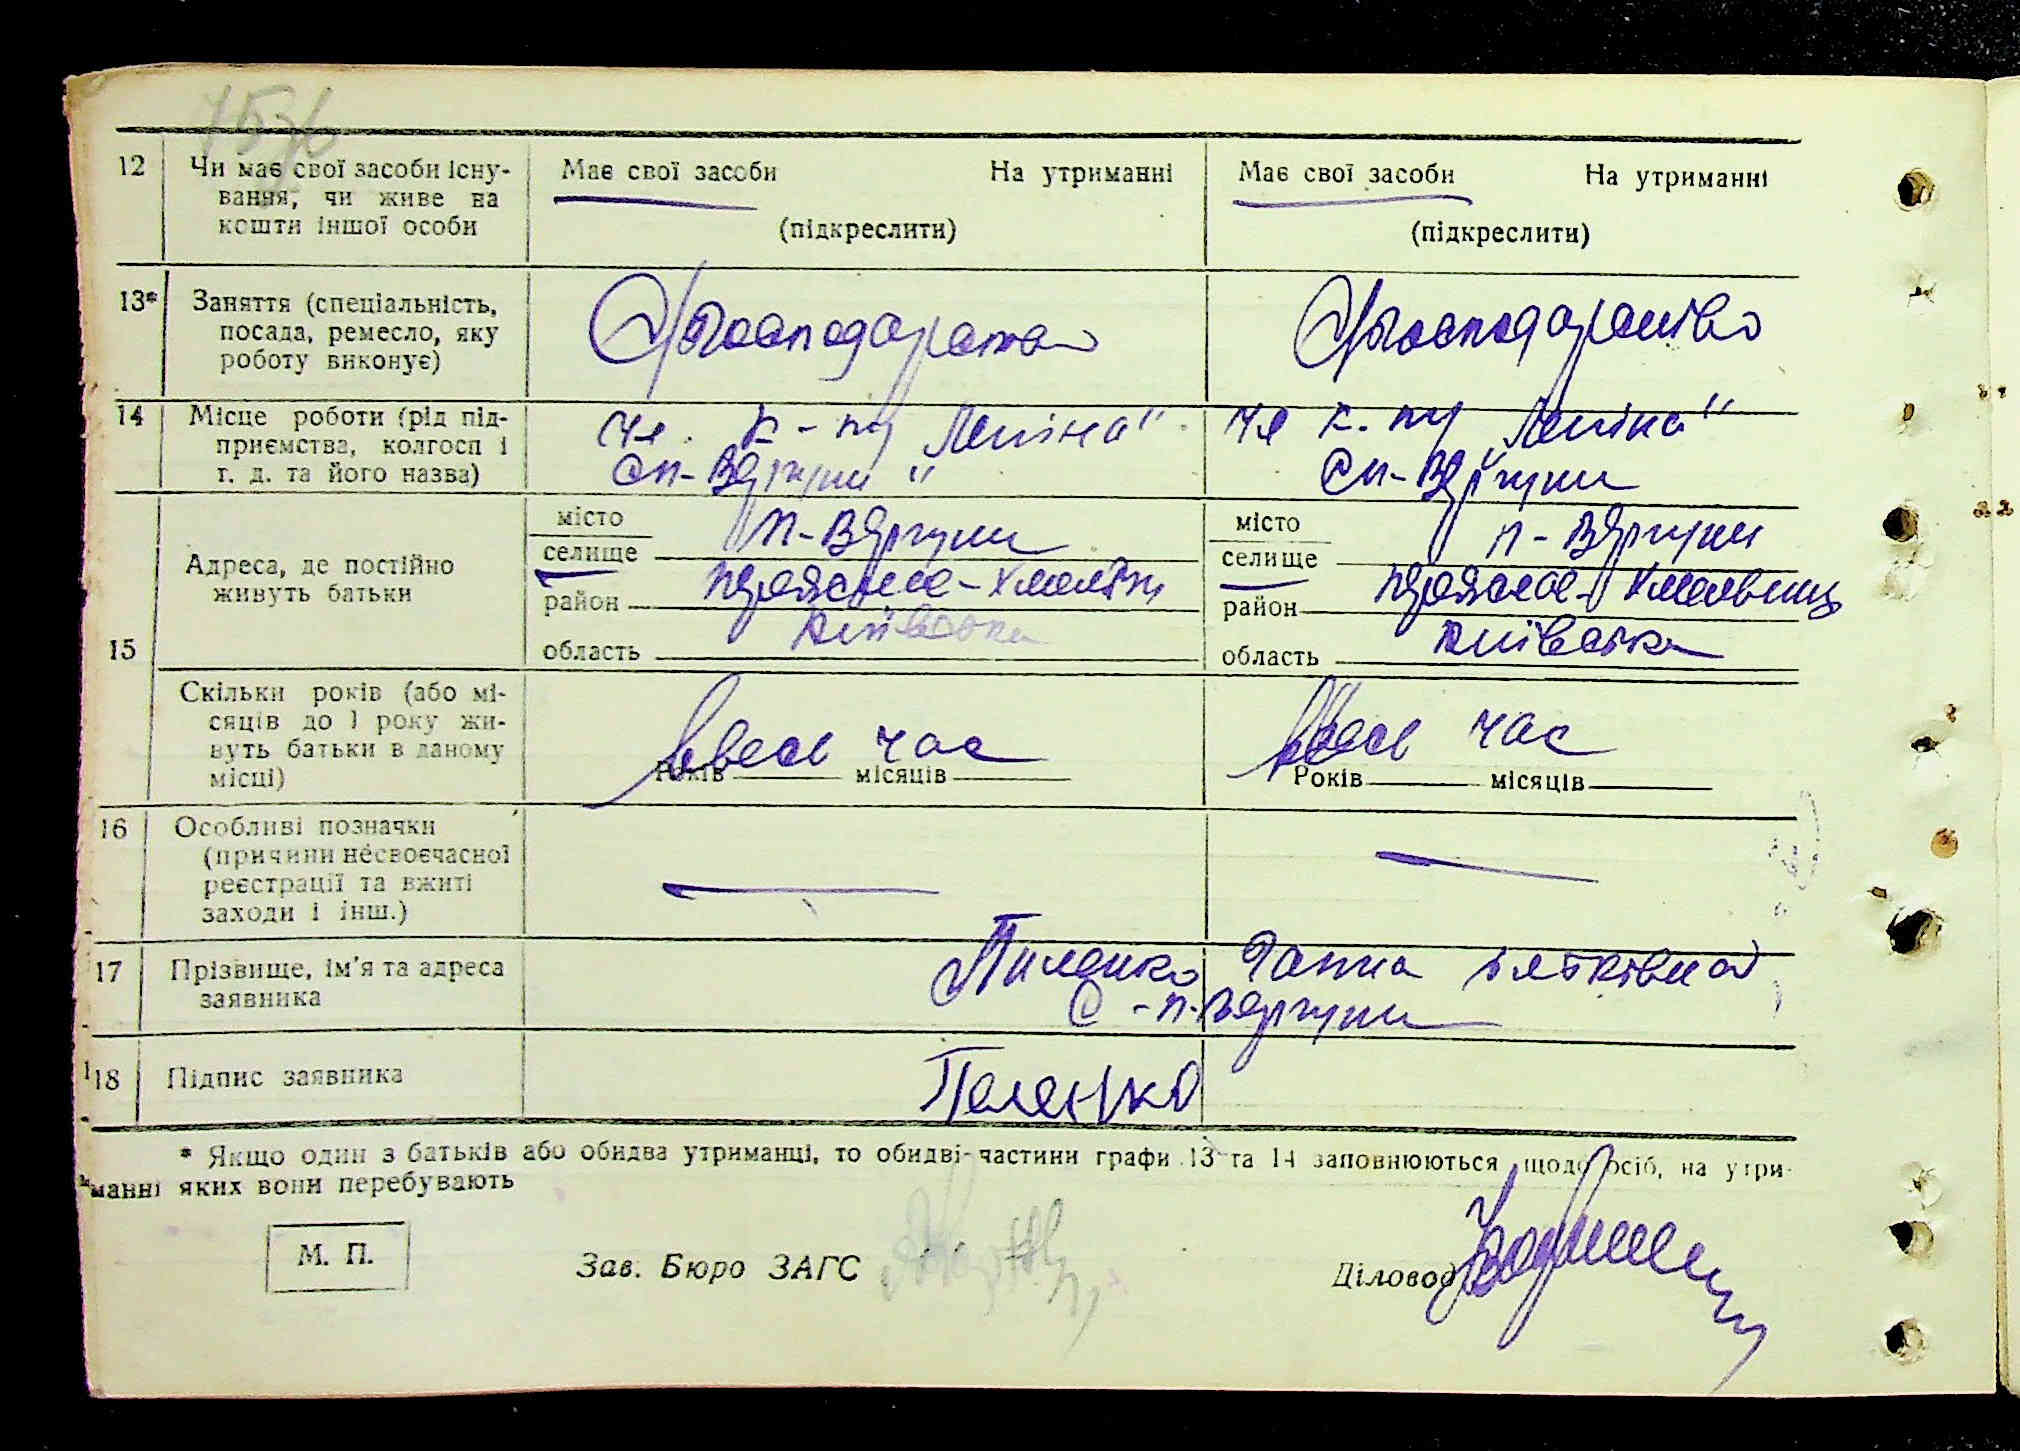 12 Чи має свої засоби існу-
вання, чи живе на
кошти іншої особи
Має свої засоби На утриманні
(підкреслити)
Має свої засоби На утриманні
(підкреслити)
13* Заняття (спеціальність,
посада, ремесло, яку
роботу виконує)
14 Місце роботи (рід під-
приємства, колгосп і
т. д. та його назва)
чл. к-пу „Леніна"
Сп-Вергуни"
чл к. пу „Леніна"
Сп-Вергуни
15 Адреса, де постійно
живуть батьки
місто
селище п-Вергуни
район
область Київська
місто
селище п-Вергуни
район
область Київська
Скільки років (або мі-
сяців до 1 року жи-
вуть батьки в даному
місці)
ввесь час
Років місяців
ввесь час
Років місяців
16 Особливі позначки
(причини несвоєчасної
реєстрації та вжиті
заходи і інш.)
17 Прізвище, ім'я та адреса
заявника
Пиленко Ганна
С-п-Вергуни
18 Підпис заявника
Пеленко
* Якщо один з батьків або обидва утриманці, то обидві частини графи 13 та 14 заповнюються щодо осіб, на утри-
манні яких вони перебувають
М. П.
Зав. Бюро ЗАГС
Діловод